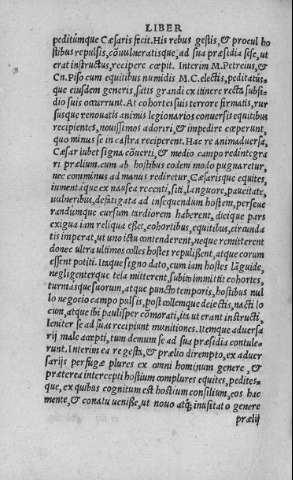 LIBER
peditúmque Cæsaris fecit. His rebus gestis, & procul ho
stibus repulsis, cōuulneratisque, ad sua præsidia sese, ut
erat instructus, recipere cœpit. Interim M. Petreius, &
Cn. Piso cum equitibus numidis M. C. electis, peditatúq́;
que eiusdem generis, satis grandi ex itinere recta subsi-
dio suis occurrunt. At cohortes suis terrore firmatis, rur
susque renouatis animis legionarios conuersis equitibus
recipientes, nouissimos adoriri, & impedire cœperunt,
quo minus se in castra reciperent. Hac re animaduersa,
Cæsar iubet signa cōuerti, & medio campo redintegra
ri prælium. cum ab hostibus eodem modo pugnaretur,
nec comminus ad manus rediretur, Cæsarisque equites,
iumentaque ex nausea recenti, siti, languore, paucitate,
uulneribus, defatigata ad insequendum hostem, perseue
randumque cursum tardiorem haberent, dieique pars
exigua iam reliqua esset, cohortibus, equitibus, circunda
tis imperat, ut uno ictu contenderent, neque remitterent
donec ultra ultimos colles hostes repulissent, atque eorum
essent potiti. Itaque signo dato, cum iam hostes lāguide,
negligenterque tela mitterent, subito immittit cohortes,
turmasque suorum, atque puncto temporis, hostibus nul
lo negocio campo pulsis, post collemque deiectis, nacti lo
cum, atque ibi paulisper cōmorati, ita ut erant instructi,
leniter se ad suas recipiunt munitiones. Itemque aduersa
rij male accepti, tum demum se ad sua præsidia contule-
runt. Interim ea re gesta, & prælio dirempto, ex aduer
sarijs perfugæ plures ex omni hominum genere, &
præterea intercepti hostium complures equites, pedites-
que, ex quibus cognitum est hostium consilium, eos hac
mente, & conatu uenisse, ut nouo atq; inusitato genere
prælij